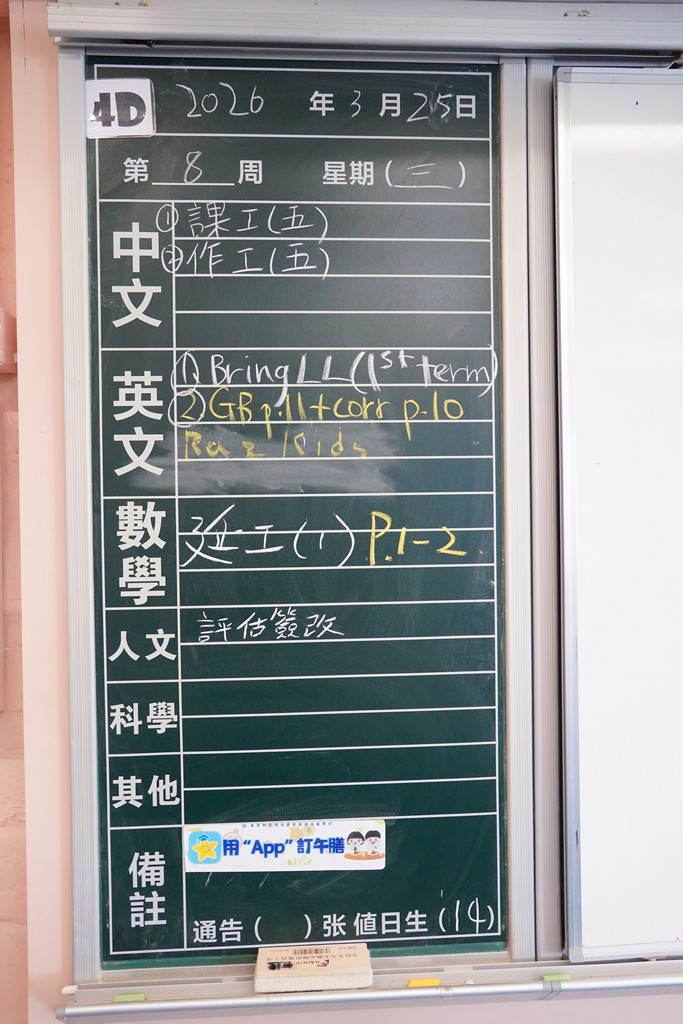 4D
2026 年 3 月 25 日
第 8 周 星期 (三)
中文
① 課工(五)
② 作工(五)
英文
① Bring LL (1st term)
② GB p.11+corr p.10
Raz Kids
數學
延工(1) P.1-2
人文
評估簽改
科學
其他
備註
用“App”訂午膳
通告 ( ) 张 值日生 (14)